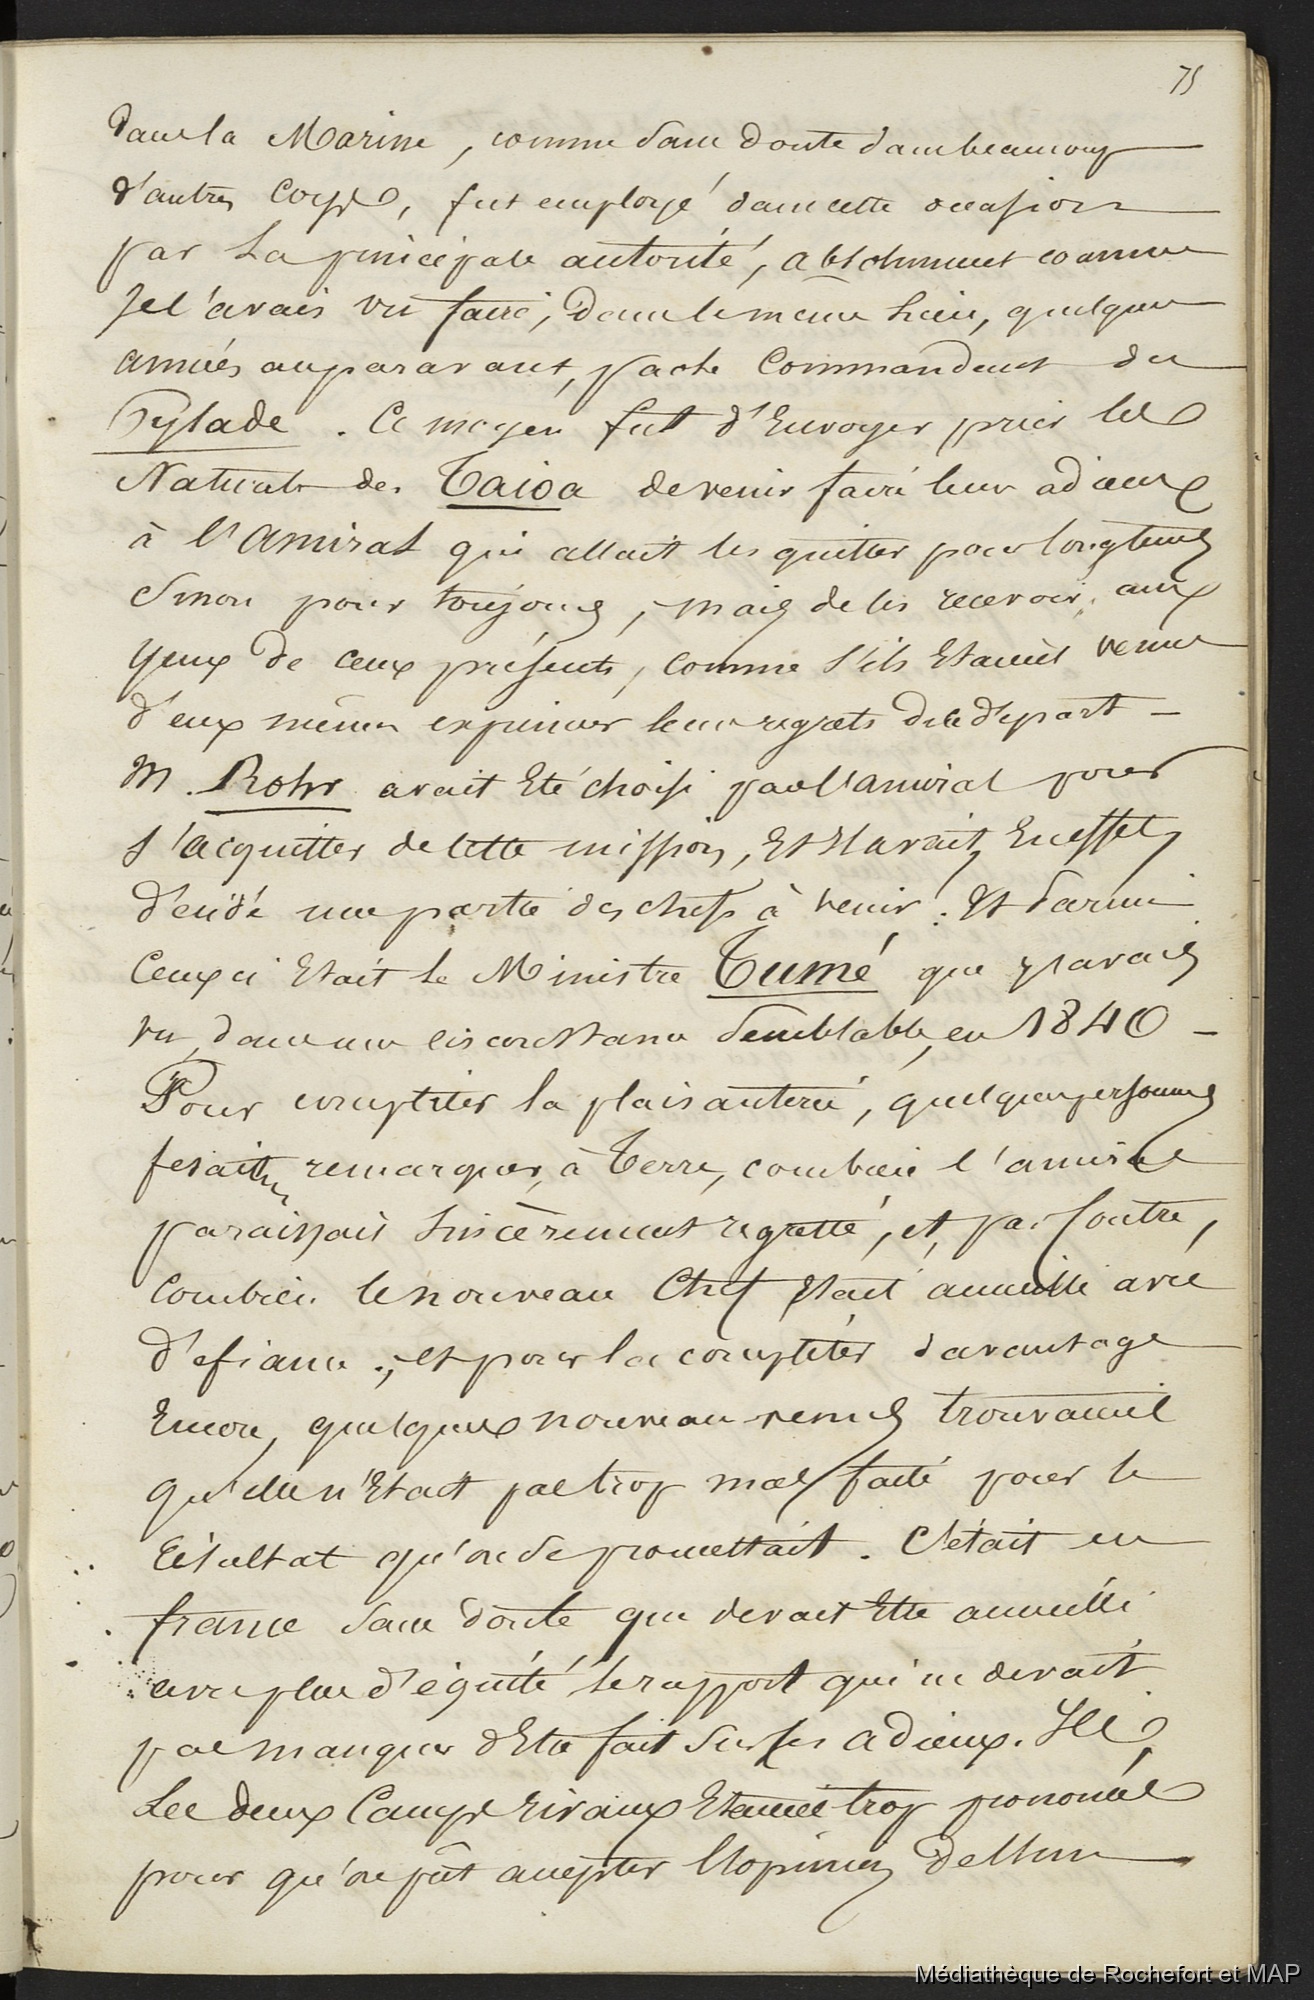 75
dans la Marine, comme sans doute dans beaucoup
d'autres corps, fut employé dans cette occasion
par la principale autorité, absolument comme
je l'avais vu faire, dans le même lieu, quelques
années auparavant, par le Commandant du
Pylade. Ce moyen fut d'Envoyer prier les
Naturels de Taioa de venir faire leurs adieux
à l'Amiral qui allait les quitter pour longtems
sinon pour toujours, mais de les recevoir, aux
yeux de ceux présents, comme s'ils Etaient venus
d'eux mêmes exprimer leurs regrets de le départ –
M. Rohr avait Eté choisi par l'amiral pour
s'acquitter de cette mission, Et Il avait, En effet,
décidé une partie des chefs à venir. Et parmi
Ceux ci Etait le Ministre Tumé que j'avais
vu, dans une circonstance semblable, en 1840 –
Pour compléter la plaisanterie, quelques personnes
fesaient remarquer, à Terre, combien l'amiral
paraissait sincèrement regretté, et, par contre,
combien le nouveau Chef Etait accueilli avec
défiance ; et pour la compléter davantage
Encore, quelques nouveau venus trouvaient
qu'elle n'Etait pas trop mal faite pour le
résultat qu'on se promettait. C'était en
france sans doute que devait Etre accueilli
avec plus d'équité le rapport qui ne devait
pas manquer d'Etre fait sur les adieux. Ici
Les deux Camps rivaux Etaient trop prononcés
pour qu'on pût accepter l'opinion de l'un
Médiathèque de Rochefort et MAP